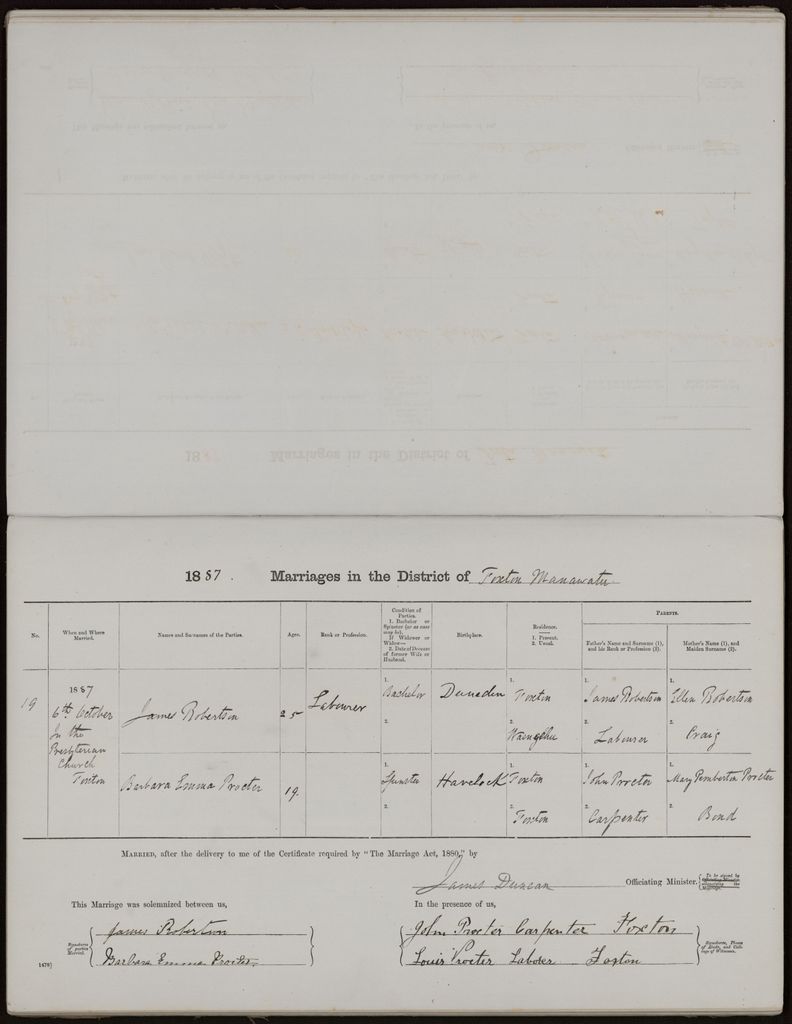 1887. Marriages in the District of Foxton Manawatu
No.
When and Where Married.
Names and Surnames of the Parties.
Ages.
Rank or Profession.
Condition of Parties.
1. Bachelor or Spinster (or as case may be).
If Widower or Widow—
2. Date of Decease of former Wife or Husband.
Birthplace.
Residence.
1. Present.
2. Usual.
PARENTS.
Father's Name and Surname (1), and his Rank or Profession (2).
Mother's Name (1), and Maiden Surname (2).
19
1887
6th October
In the
Presbyterian
Church
Foxton
James Robertson
25
Labourer
1.
Bachelor
2.
Dunedin
1.
Foxton
2.
1.
James Robertson
2.
Labourer
1.
Ellen Robertson
2.
Craig
Barbara Emma Procter
19.
1.
Spinster
2.
Havelock
1.
Foxton
2.
Foxton
1.
John Procter
2.
Carpenter
1.
Mary Pemberton Procter
2.
Bond
MARRIED, after the delivery to me of the Certificate required by "The Marriage Act, 1880," by
James Duncan Officiating Minister.
This Marriage was solemnized between us,
In the presence of us,
Signatures of parties Married.
James Robertson
Barbara Emma Procter.
John Procter Carpenter Foxton
Louis Procter Laborer Foxton
Signatures, Places of Abode, and Callings of Witnesses.